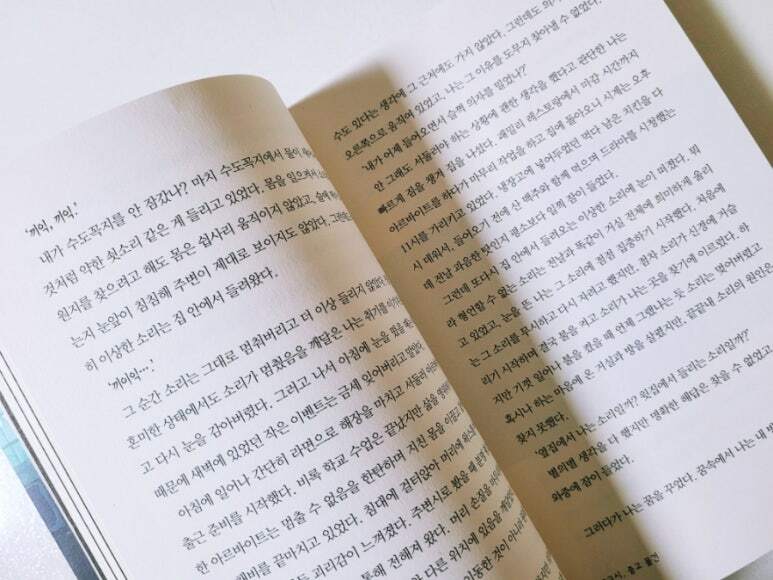 '끼익, 끼익.'
내가 수도꼭지를 안 잠갔나? 마치 수도꼭지에서 물이
것처럼 약한 쇳소리 같은 게 들리고 있었다. 몸을 일으켜서
원지를 찾으려고 해도 몸은 쉽사리 움직이지 않았고, 슬
는지 눈앞이 침침해 주변이 제대로 보이지도 않았다. 그런
히 이상한 소리는 집 안에서 들려왔다.
'끼이익….'
그 순간 소리는 그대로 멈춰버리고 더 이상 들리지 않았다.
혼미한 상태에서도 소리가 멈췄음을 깨달은 나는 취기를
고 다시 눈을 감아버렸다. 그리고 나서 아침에 눈을 떴을
때문에 새벽에 있었던 작은 이벤트는 금세 잊어버리고 말았다.
아침에 일어나 간단히 라면으로 해장을 마치고 서둘러
출근 준비를 시작했다. 비록 학교 수업은 끝났지만 삶을
한 아르바이트는 멈출 수 없음을 한탄하며 지친 몸을 이끌고
해비를 끝마치고 있었다. 침대에 걸터앉아 머리에
도 괴리감이 느껴졌다. 주변시로 봤을 때
통해 전해져 왔다. 머리 손질을
다른 위치에 있음을
동한 것이 아니라
수도 있다는 생각에 그 근처에도 가지 않았다. 그런데도 의
오른쪽으로 움직여 있었고, 나는 그 이유를 도무지 찾아낼 수 없었다.
'내가 어제 들어오면서 슬쩍 의자를 밀었나?'
안 그래도 서둘러야 하는 상황에 괜한 생각을 했다고 판단한 나는
빠르게 잠을 챙겨 집을 나섰다. 패밀리 레스토랑에서 마감 시간까지
아르바이트를 하다가 마무리 작업을 하고 집에 돌아오니 시계는 오후
11시를 가리키고 있었다. 냉장고에 넣어두었던 먹다 남은 치킨을 다
시 데워서, 들어오기 전에 산 맥주와 함께 먹으며 드라마를 시청했는
데 전날 과음한 탓인지 평소보다 일찍 잠이 들었다.
그런데 또다시 집 안에서 들려오는 이상한 소리에 눈이 떠졌다. 뭐
라 형언할 수 없는 소리는 전날과 똑같이 거실 전체에 희미하게 울리
고 있었고, 눈을 뜬 나는 그 소리에 점점 집중하기 시작했다. 처음에
는 그 소리를 무시하고 다시 자려고 했지만, 점차 소리가 신경에 거슬
리기 시작하며 결국 불을 켜고 소리가 나는 곳을 찾기에 이르렀다. 하
지만 기껏 일어나 불을 켰을 때 언제 그랬냐는 듯 소리는 멎어버렸고
혹시나 하는 마음에 온 거실과 방을 살폈지만, 끝끝내 소리의 원인은
찾지 못했다.
'옆집에서 나는 소리일까? 윗집에서 들리는 소리일까?'
별의별 생각을 다 했지만 명확한 해답은 찾을 수 없었고,
와중에 잠이 들었다.
그러다가 나는 꿈을 꾸었다. 꿈속에서 나는 내
중고 물건